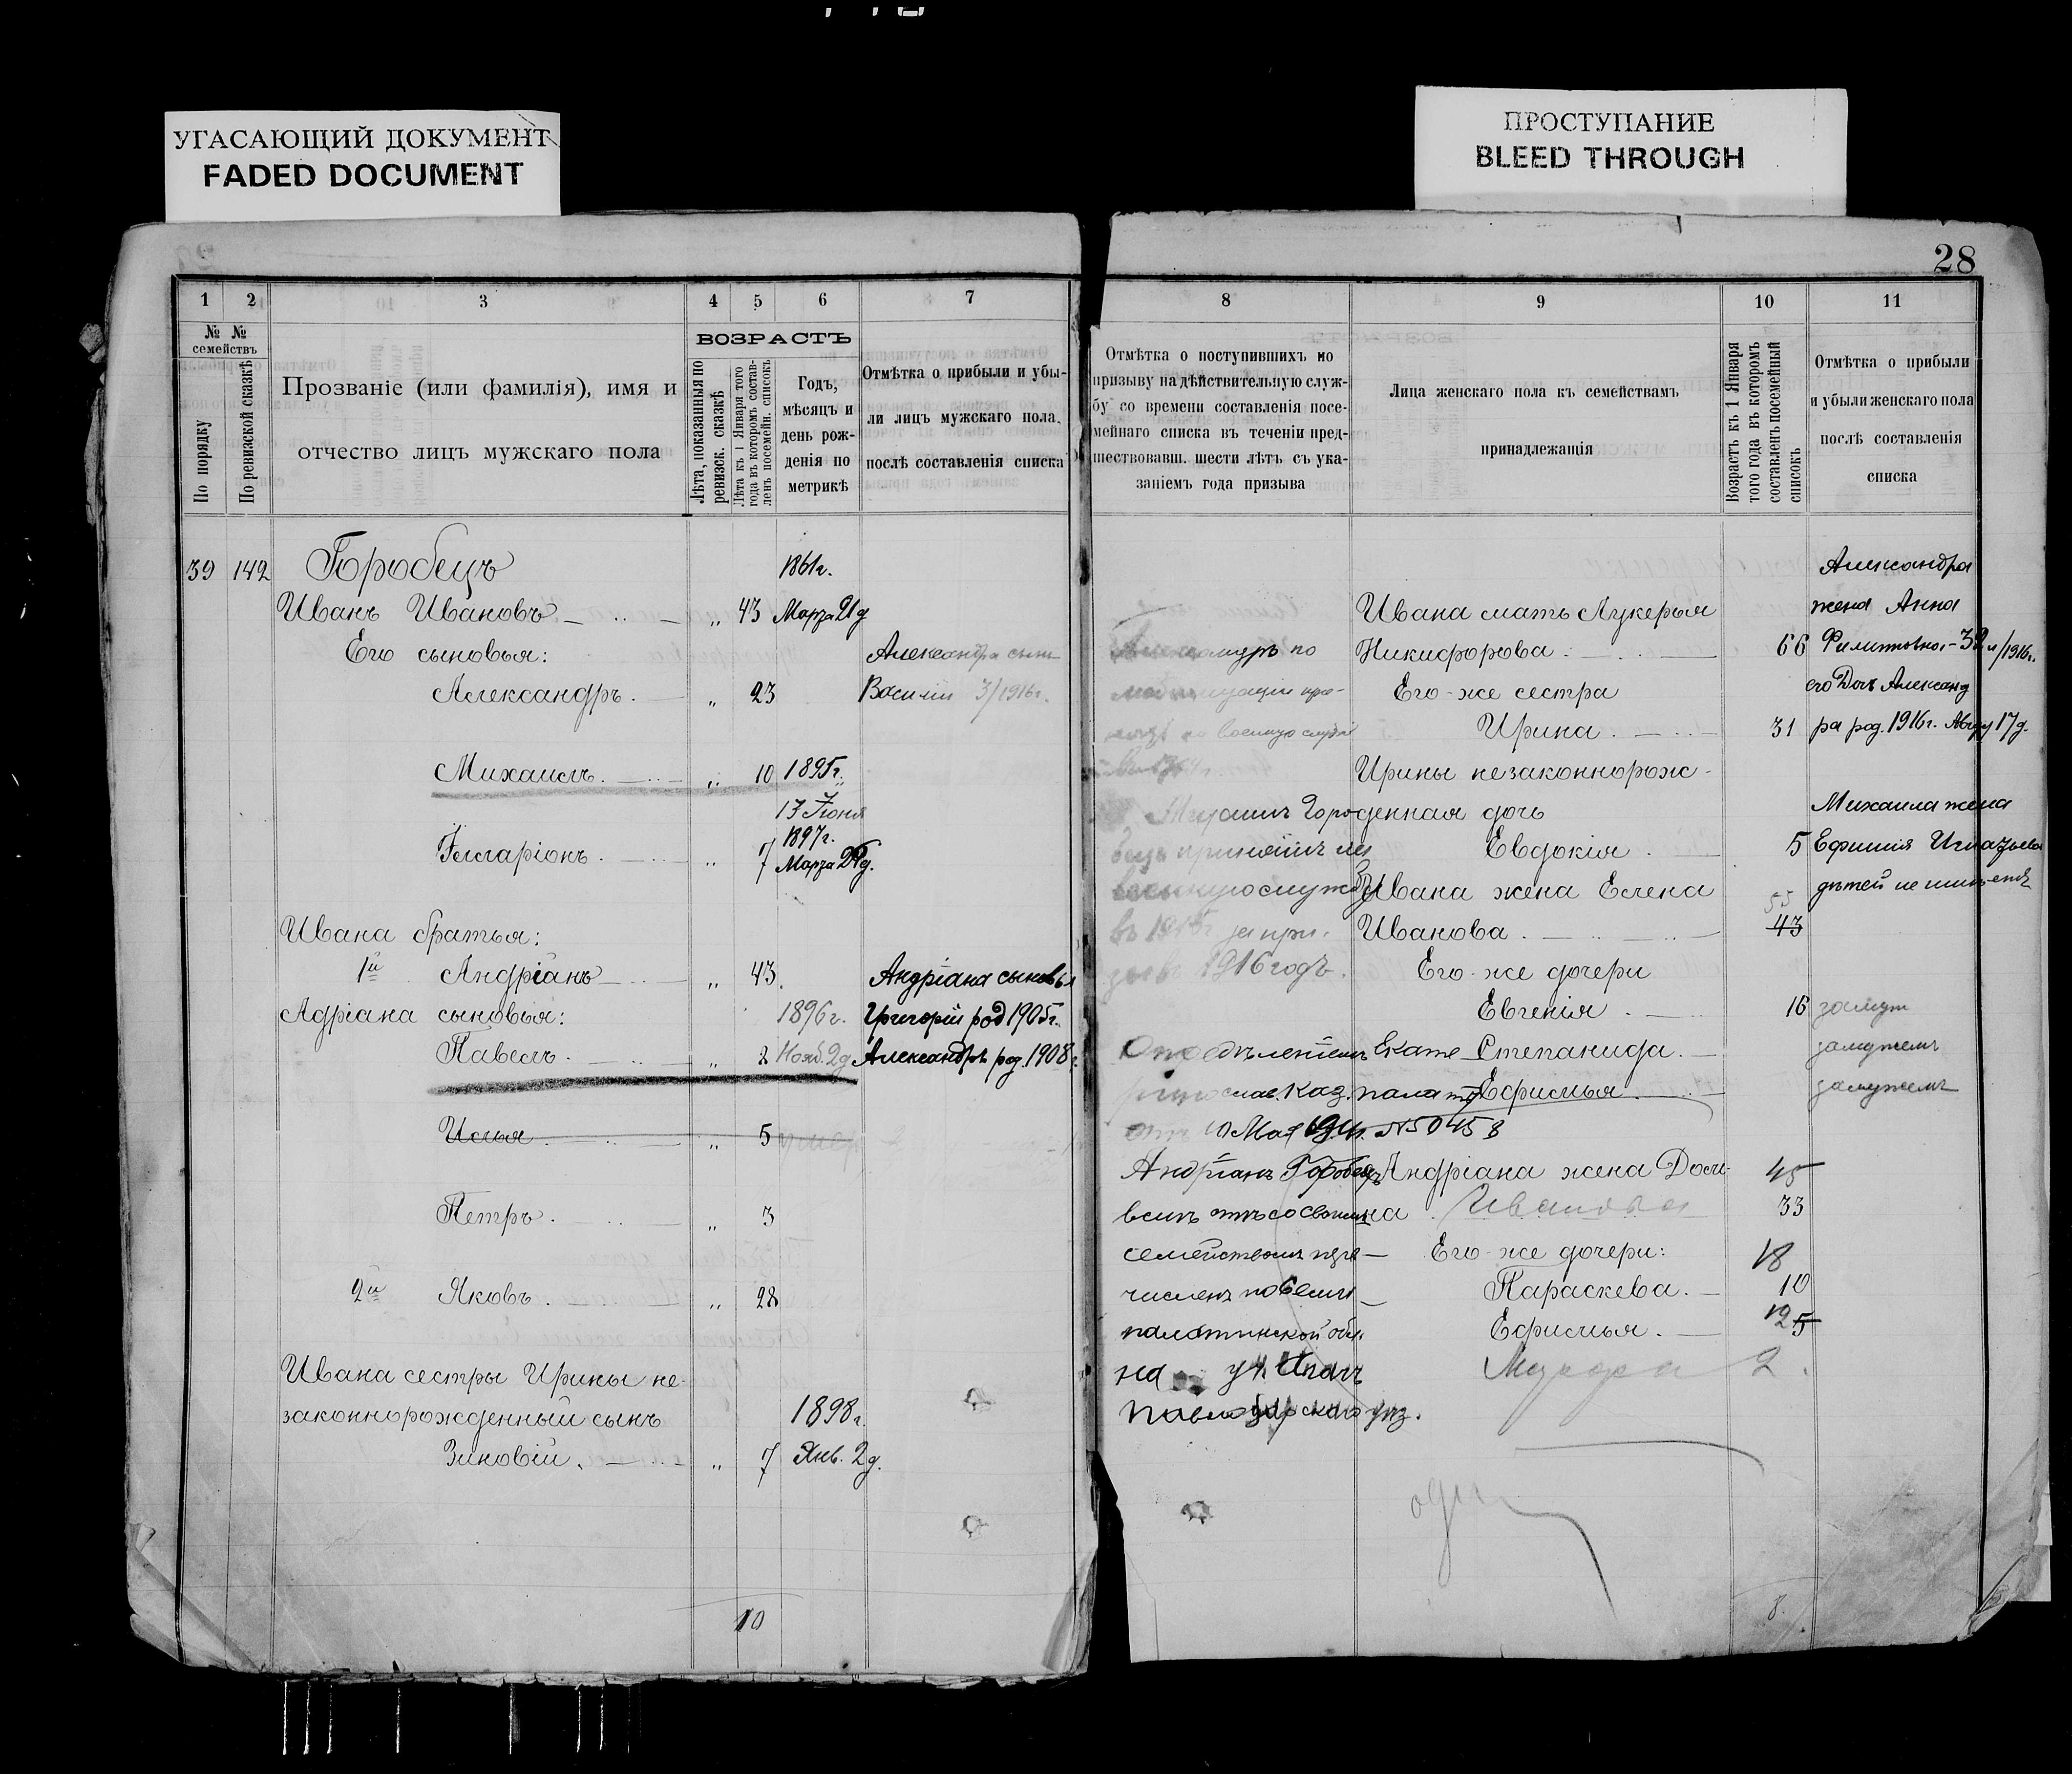 УГАСАЮЩИЙ ДОКУМЕНТ
FADED DOCUMENT
ПРОСТУПАНИЕ
BLEED THROUGH
28
1 2 3 4 5 6 7
№ №
семействъ
По порядку
По ревизской сказкѣ
Прозваніе (или фамилія), имя и
отчество лицъ мужскаго пола
ВОЗРАСТЪ
Лѣта, показанныя по
ревизск. сказкѣ
Лѣта къ 1 Января того
года въ которомъ состав-
ленъ посемейн. списокъ
Годъ,
мѣсяцъ и
день рож-
денія по
метрикѣ
Отмѣтка о прибыли и убы-
ли лицъ мужскаго пола,
послѣ составленія списка
39 142 Горобецъ 1861г.
Иванъ Ивановъ „ 43 Марта 21д
Его сыновья: Александра сынъ
Александръ „ 23 Василій 3/1916г.
Михаилъ „ 10 1895г.
13 Іюня
1897г.
Иларіонъ „ 7 Марта 28д.
Ивана братья:
1й Андріанъ „ 43. Андріана сыновья
Адріана сыновья: 1896г. Григорій род 1905г.
Павелъ „ 2 Нояб. 2д Александръ род. 1908г.
Илья „ 5 умер
Петръ „ 3
2й Яковъ „ 28
Ивана сестры Ирины не-
законнорожденный сынъ 1898г.
Зиновій „ 7 Янв. 2д.
10
8 9 10 11
Отмѣтка о поступившихъ по
призыву на дѣйствительную служ-
бу со времени составленія посе-
мейнаго списка въ теченіи пред-
шествовавш. шести лѣтъ съ ука-
заніемъ года призыва
Лица женскаго пола къ семействамъ
принадлежащія
Возрастъ къ 1 Января
того года въ которомъ
составленъ посемейный
списокъ
Отмѣтка о прибыли
и убыли женскаго пола
послѣ составленія
списка
Александръ по
мобилизаціи
на военную службу
Михаилъ Горо-
бецъ принятъ на
военную службу
въ 1915г за при-
зывъ 1916 годъ.
Опредѣленіемъ Екате
ринослав. Каз. палаты
отъ 10 Мая 1911г. №50458
Андріанъ Горобецъ
всинъ со своимъ
семействомъ пере-
численъ по Семи-
палатинской обл.
на
Павлодарского уѣз.
Ивана мать Лукерья
Никифорова 66
Его-же сестра
Ирина 31
Ирины незаконнорож-
денная дочь
Евдокія 5
Ивана жена Елена
Иванова 43 55
Его-же дочери
Евгенія 16 замуж
Степанида замужемъ
Ефимья замужемъ
Андріана жена Дом- 45
на Иванова 33
Его-же дочери: 18
Параскева 10
Ефимья 12 5
2
8
Александра
жена Анна
Филиповна-32 л/1916г.
его Дочь Александ
ра род. 1916г. Авгу 17д.
Михаила жена
Ефимія Игнатьева
дѣтей не имѣетъ